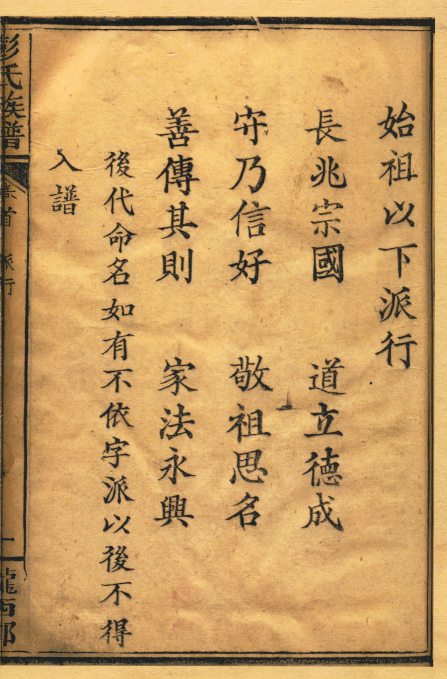 始祖以下派行
長兆宗國 道立德成
守乃信好 敬祖思名
善傳其則 家法永興
後代命名如有不依字派以後不得
入譜
彭氏族譜
卷首 派行
隴西郡